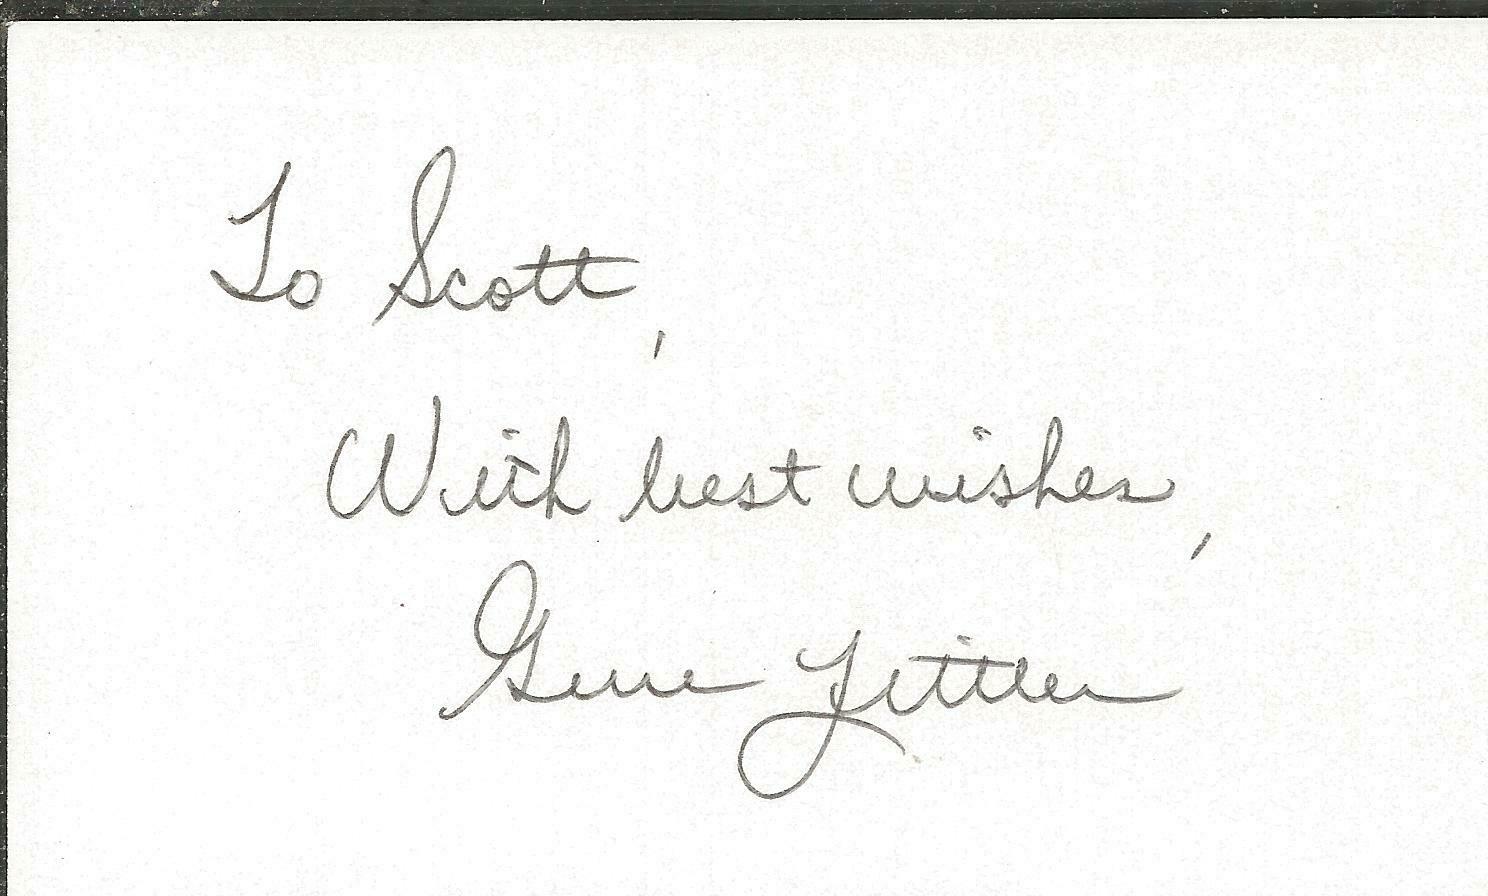 To Scott,
With best wishes,
Gene Littler